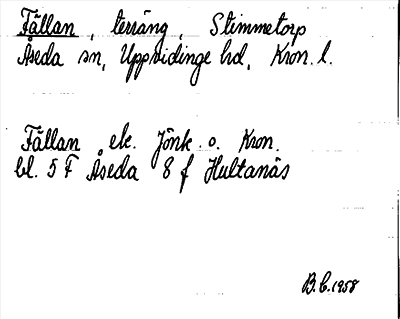 Fällan, terräng, Stimmetorp
Åseda sn, Uppvidinge hd, Kron. l.
Fällan ek. Jönk. o. Kron.
bl. 5 F Åseda 8 f Hultanäs
B.C. 1958